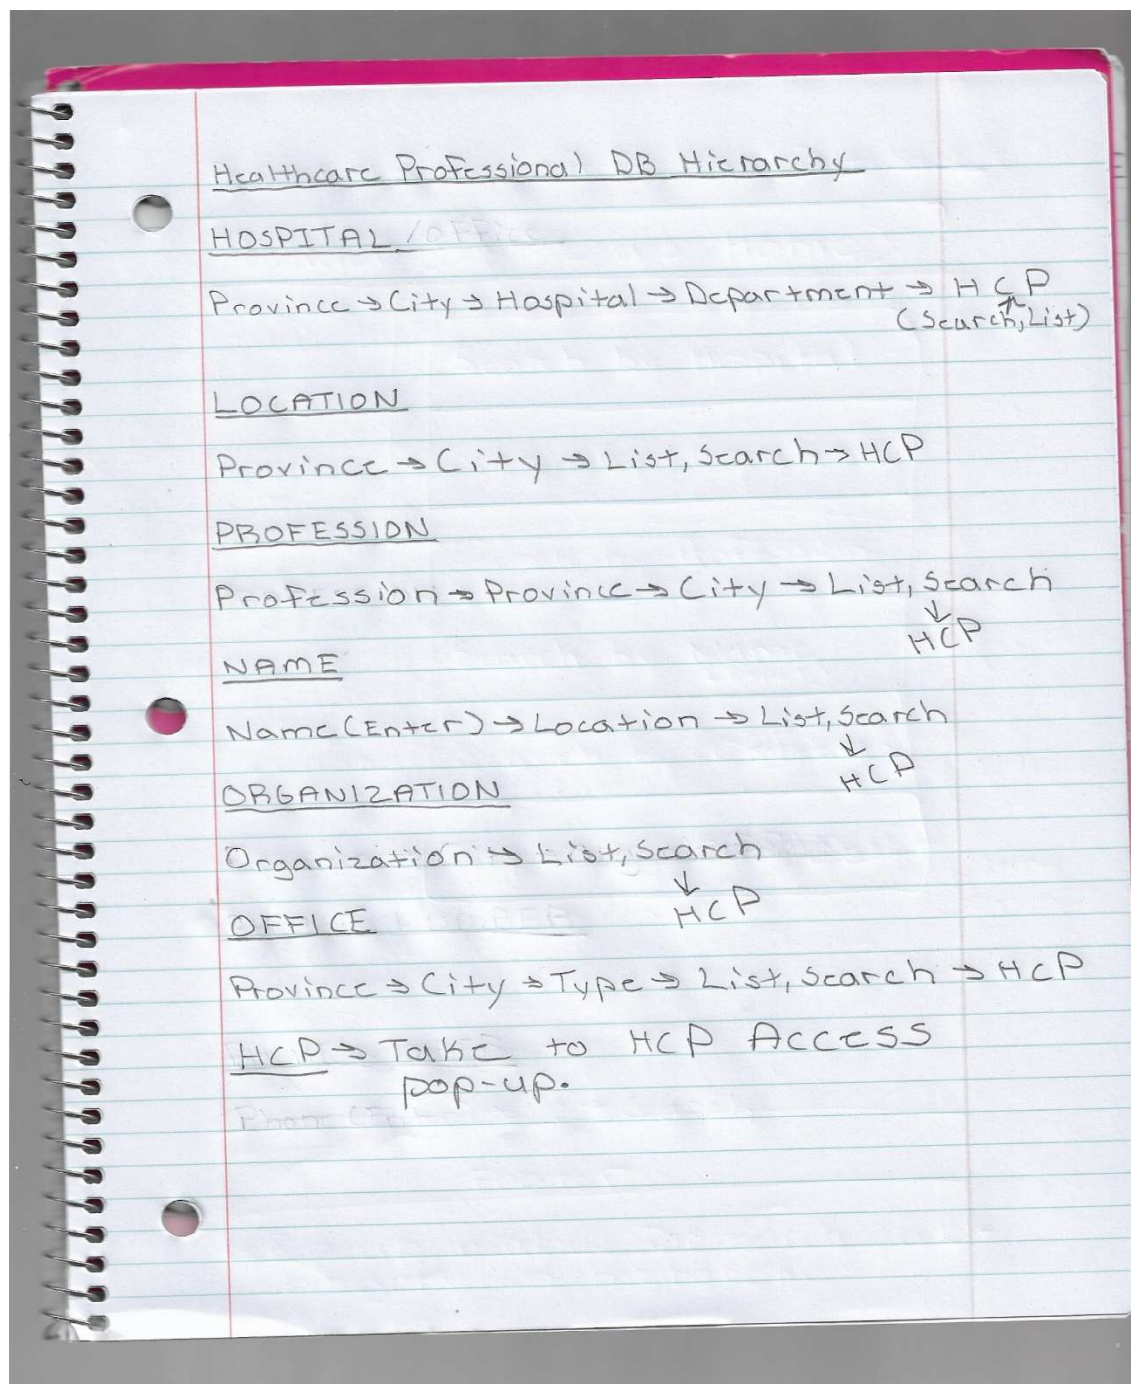 Healthcare Professional DB Hierarchy
HOSPITAL /OFFICE
Province → City → Hospital → Department → HCP
(Search, List)
LOCATION
Province → City → List, Search → HCP
PROFESSION
Profession → Province → City → List, Search
↓
HCP
NAME
Name (Enter) → Location → List, Search
↓
HCP
ORGANIZATION
Organization → List, Search
↓
HCP
OFFICE
Province → City → Type → List, Search → HCP
HCP → Take to HCP Access
pop-up.